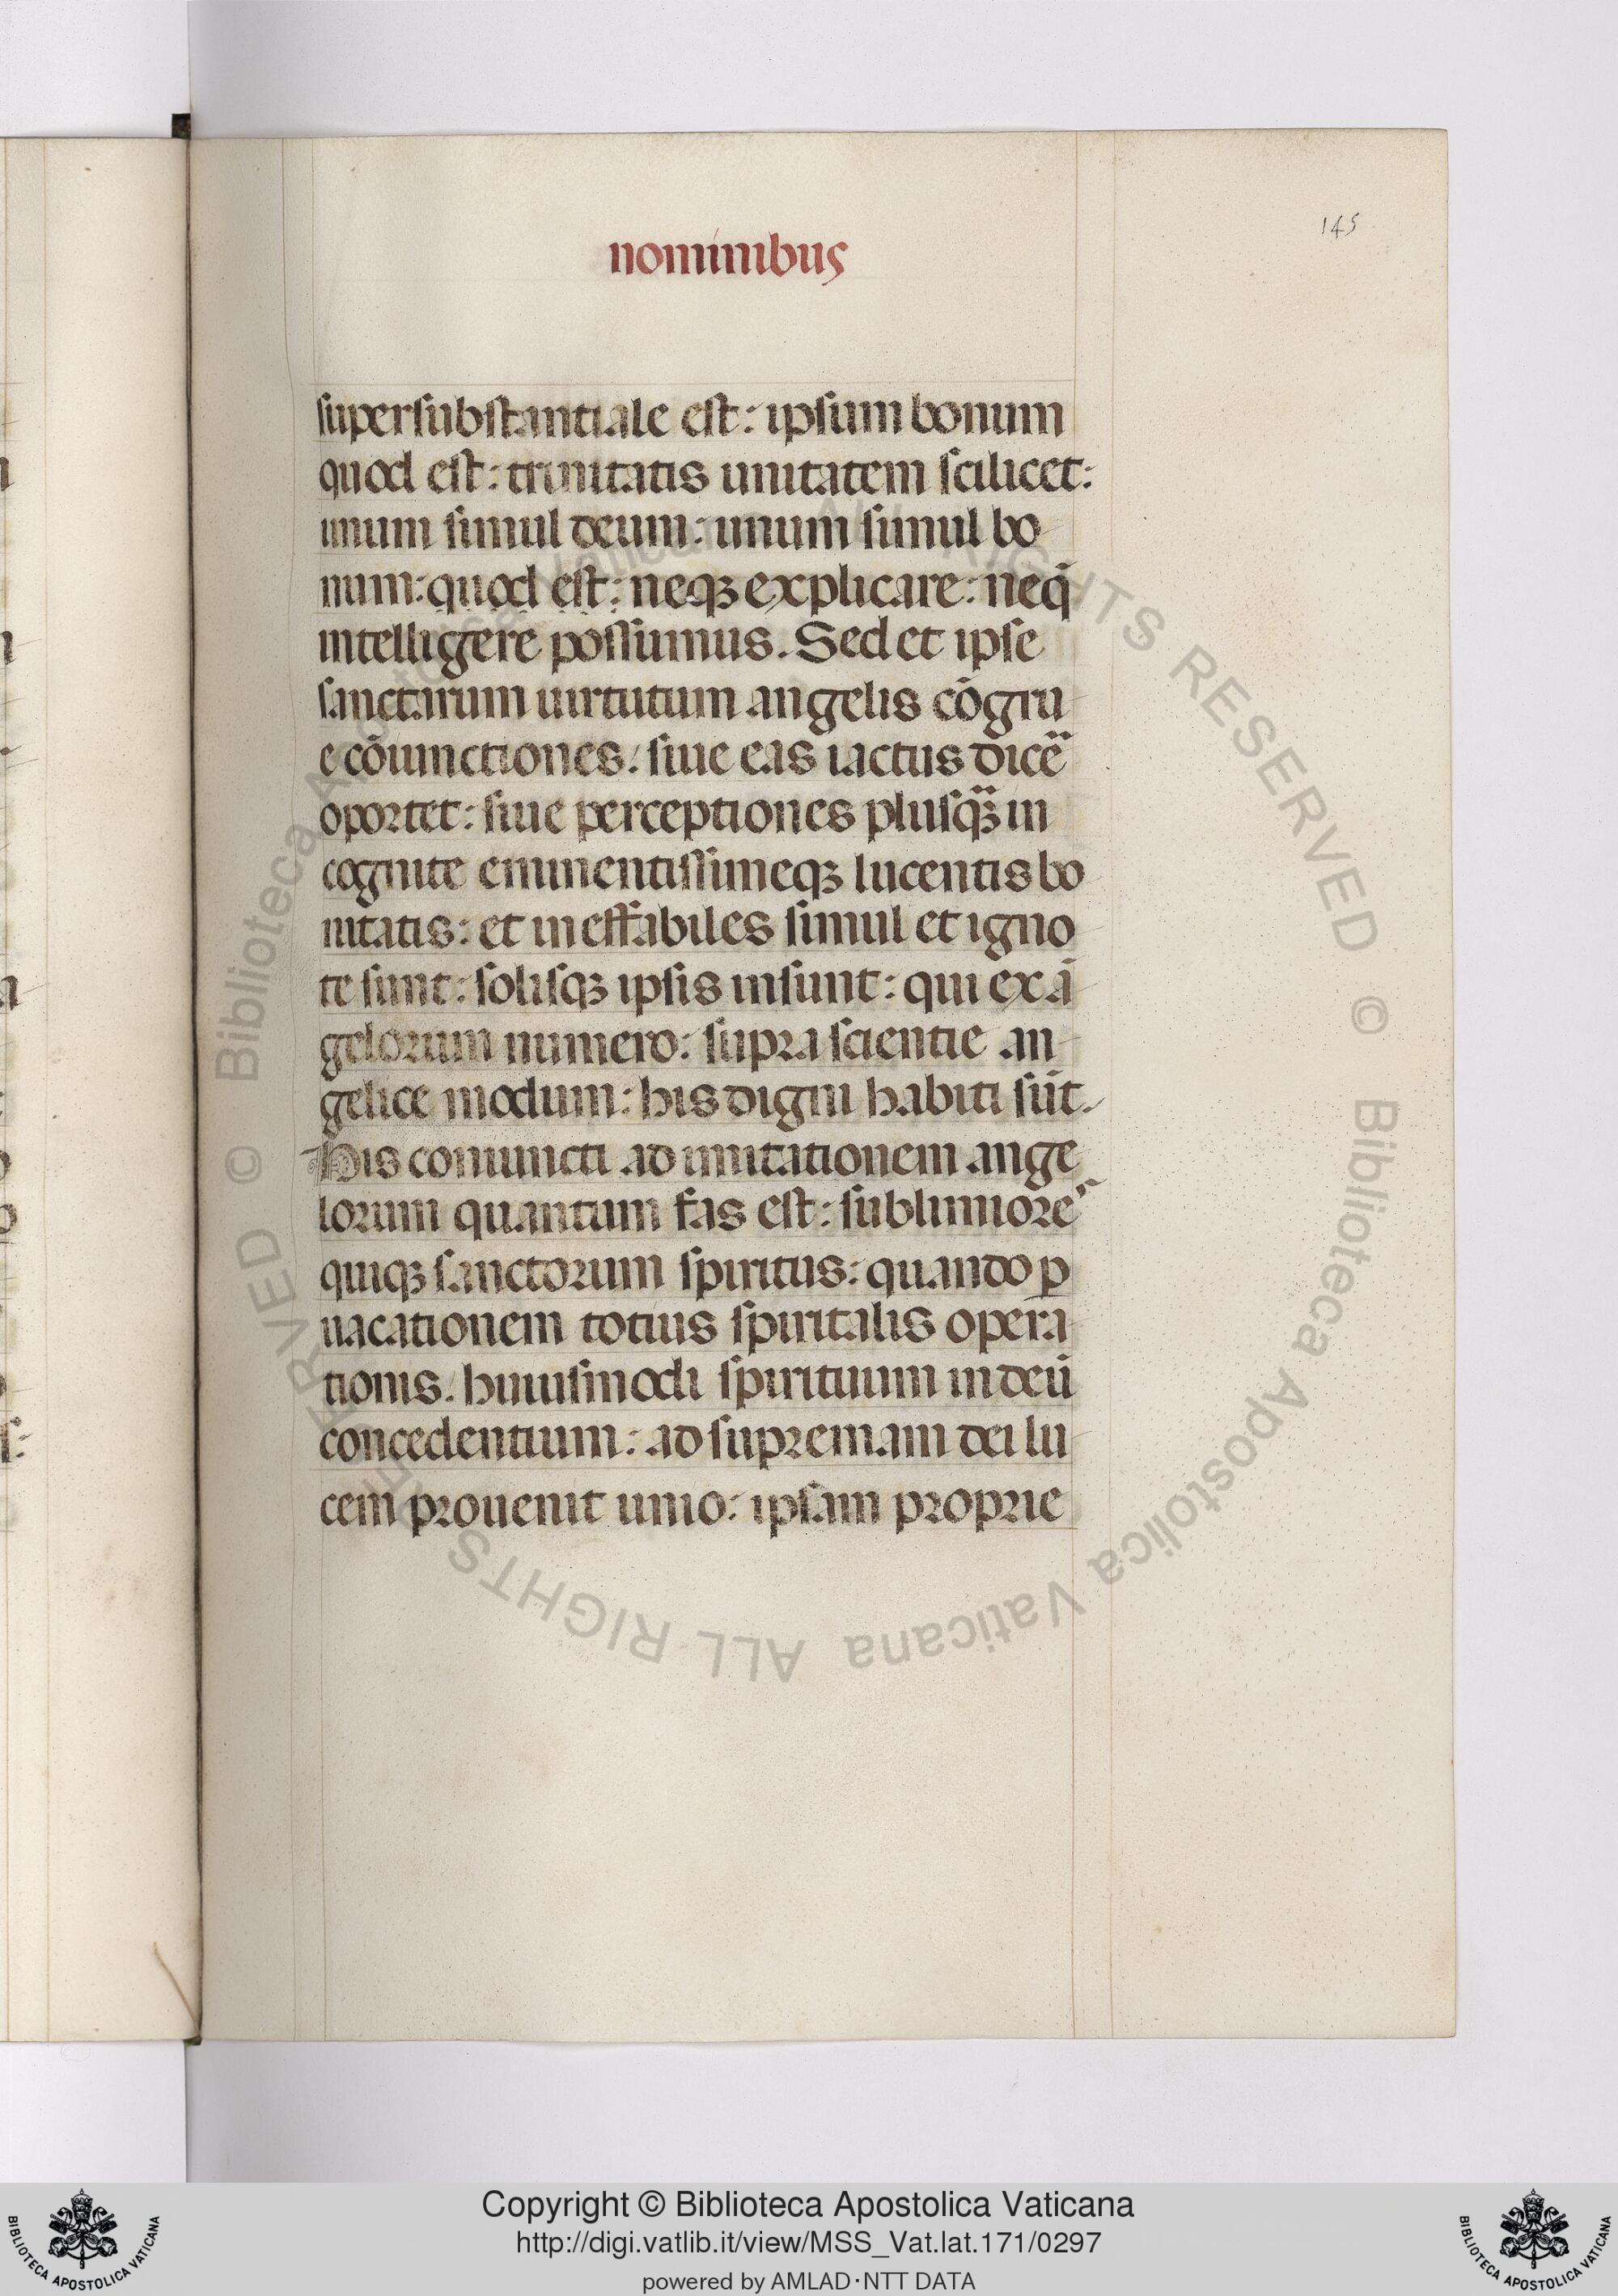 145
nominibus
supersubstantiale est: ipsum bonum
quod est: trinitatis unitatem scilicet:
unum simul deum: unum simul bo
num: quod est: neqꝫ explicare: neq̃
intelligere possumus. Sed et ipse
sanctarum uirtutum angelis cõgru
e cõiunctiones. siue eas iactus dicẽ
oportet: siue perceptiones plusq̃ꝫ in
cognite eminentissimeqꝫ lucentis bo
nitatis: et ineffabiles simul et igno
te sunt: solisqꝫ ipsis insunt: qui ex ã
gelorum numero: supra scientie an
gelice modum: his digni habiti sũt.
His coniuncti ad imitationem ange
lorum quantum fas est: sublimiores
quiqꝫ sanctorum spiritus: quando ꝑ
uacationem totius spiritalis opera
tionis. huiusmodi spirituum in deũ
concedentium: ad supremam dei lu
cem prouenit unio: ipsam proprie
© Biblioteca Apostolica Vaticana ALL RIGHTS RESERVED © Biblioteca Apostolica Vaticana ALL RIGHTS RESERVED
Copyright © Biblioteca Apostolica Vaticana
http://digi.vatlib.it/view/MSS_Vat.lat.171/0297
powered by AMLAD·NTT DATA
BIBLIOTECA APOSTOLICA VATICANA
BIBLIOTECA APOSTOLICA VATICANA